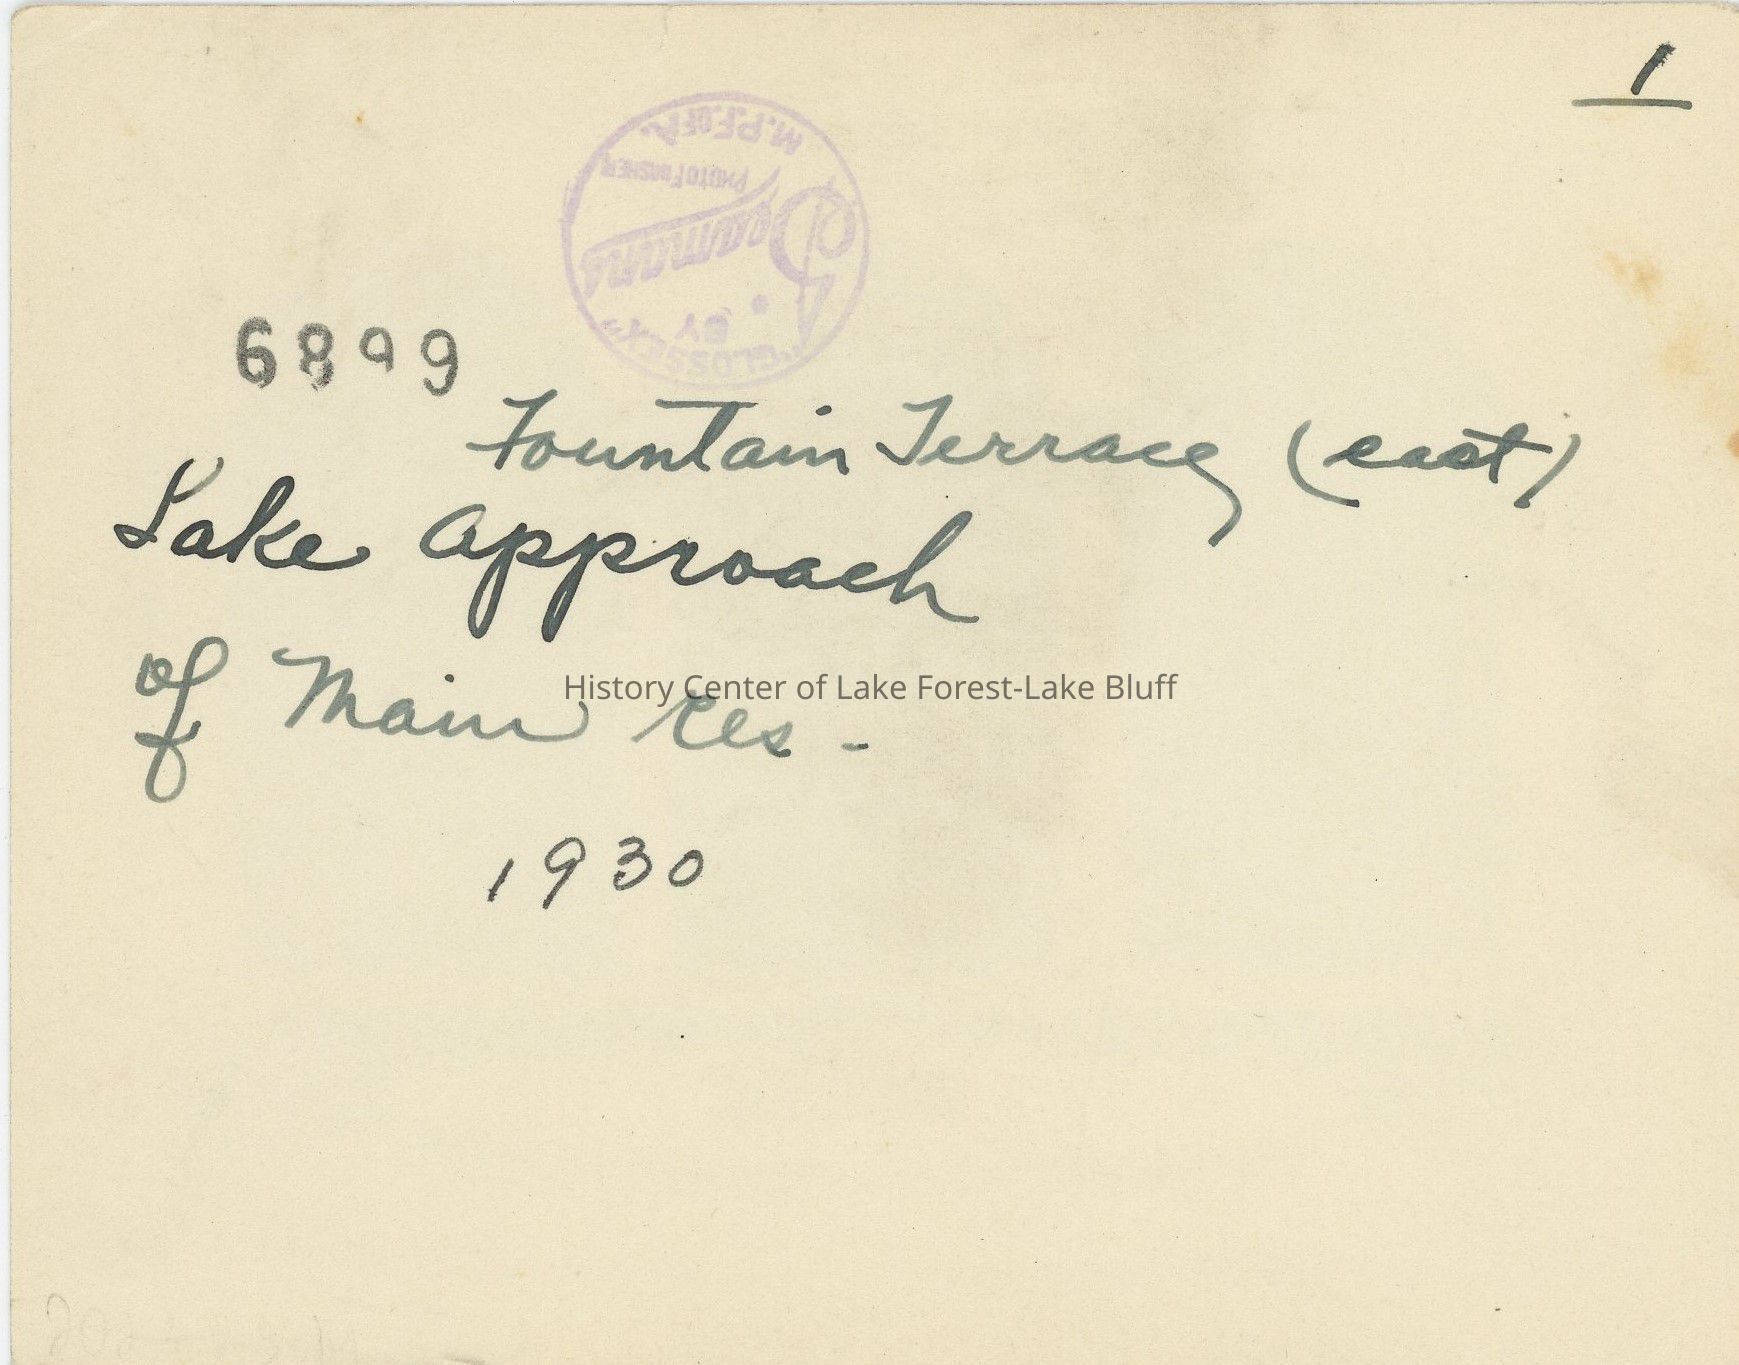 1
M.P.F. OF A.
PHOTO FINISHER
Seamans
BY
"GLOSSEX"
6899
Fountain Terrace (east)
Lake Approach
of Main Res -
History Center of Lake Forest-Lake Bluff
1930